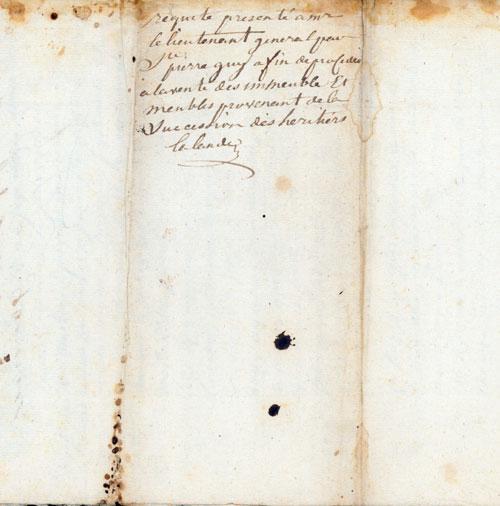 requite presenté a mr
le lieutenant general par
Sr.
pierre guy a fin de proceder
a la vente des immeuble Et
meubles provenant de la
Succession des heritiers
la lande